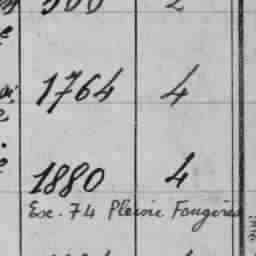 1764 4
1880 4
Exe. 74 Pleine Fougères